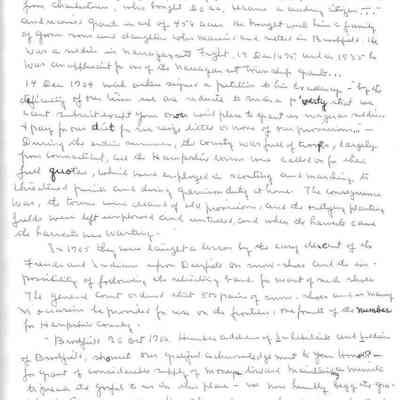 from Charlestown, who bought 20 ac, became a leading citizen
and received grant in all of 454 acres. He brought with him a family
of seven sons and daughters who married and settled in Brookfield. He
was a soldier in Narragansett Fight, 19 Dec 1675 and in 1733 he
was an applicant for one of the Narragansett Township grants
14 Dec 1704 which order signed a petition to his excellency "by the
deficiency of our crops we are reduced to such a poverty that we
can't subsist except your Excel will please to grant us wages as soldiers
& pay for our diet for we raise little or none of our provision
During the entire summer, the county was full of troops, largely
from Connecticut, and the Hampshire towns were called on for their
full quotas, which were employed in scouting and marching, to
threatened points and doing garrison duty at home. The consequence
was, the towns were cleared of old provisions, and the outlying planting
fields were left unplowed and untilled, and when the harvest came
the harvests were wanting.
In 1705 they were taught a lesson by the easy descent of the
French and Indians upon Deerfield on snow-shoes and the im-
possibility of following the retreating band for want of such shoes
The general Court ordered that 500 pairs of snow-shoes and as many
moccasins be provided for use on the frontiers, one fourth of the number
for Hampshire County.
Brookfield 26 Oct 1702 Humble address of Inhabitants and Soldiers
of Brookfield, sheweth our grateful acknowledgement to your Honors
for grant of considerable supply of money toward maintaining minister
to preach the gospel to us in this place - we now humbly beg the gra-